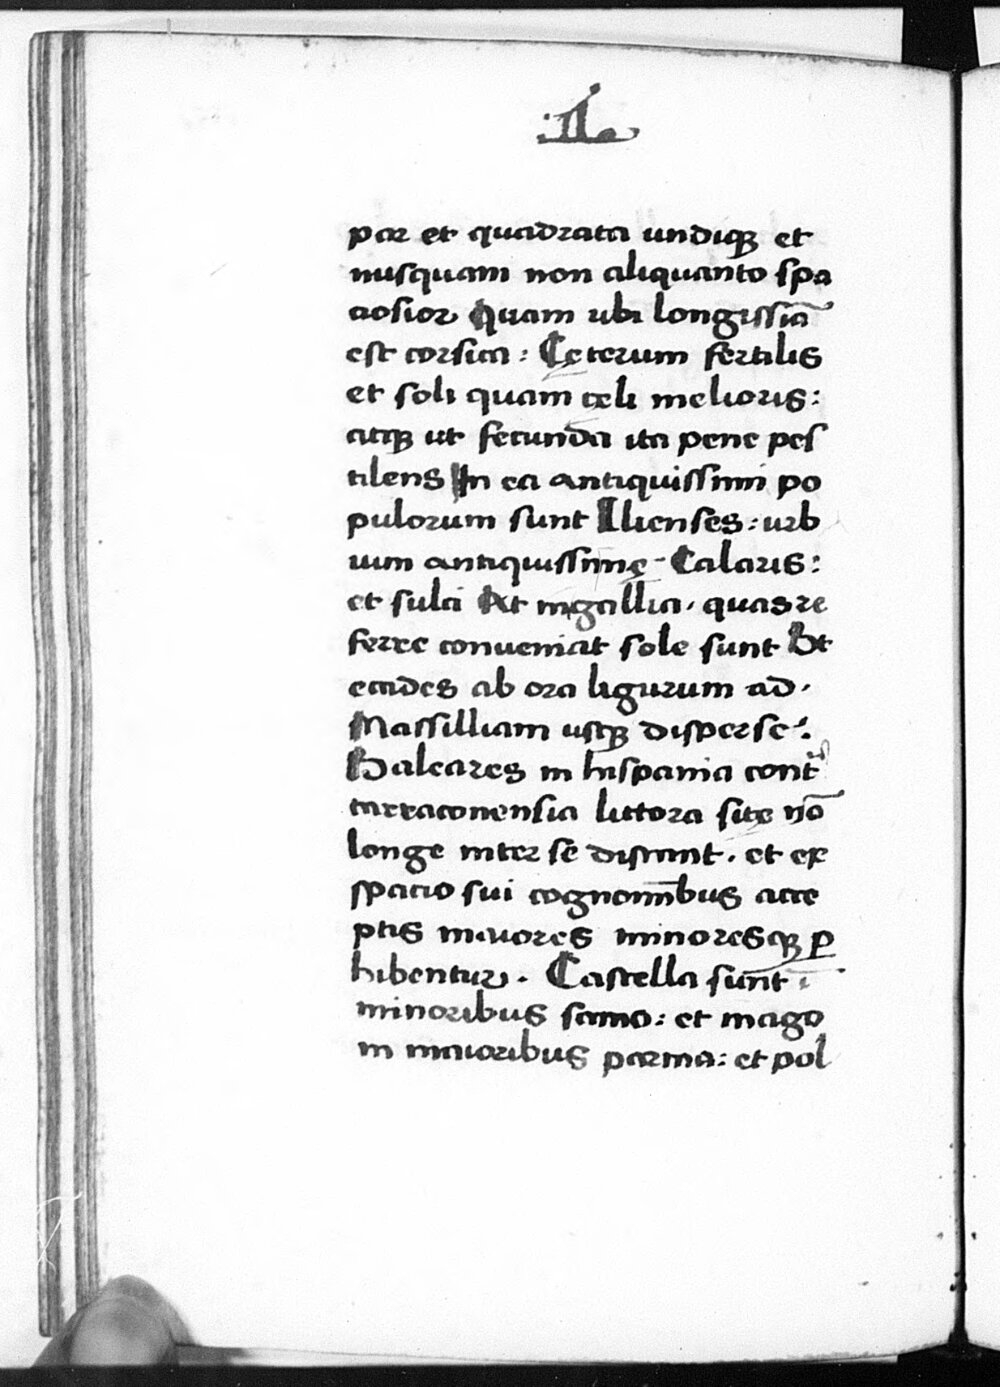 .II.
par et quadrata undiqꝫ et
nusquam non aliquanto spa
ciosior Quam ubi longissiā
est corsica : Cęterum fertilis
et soli quam cęli melioris :
atqꝫ ut fecunda ita pene pes
tilens In ea antiquissimi po
pulorum sunt Ilienses : urb
ium antiquissimę - Calaris :
et sulci At in gallia , quas re
ferre conveniat sole sunt St
ecades ab ora ligurum ad ,
Massilliam usqꝫ disperse :
Baleares in hispania cont
tarraconensia littora sitę nō
longe inter se distant . et ex
spacio sui cognoīnbus acce
ptis maiores minoresqꝫ ꝑ
hibentur . Castella sunt ī
minoribus Iamo : et mago
in maioribus parma : et pol